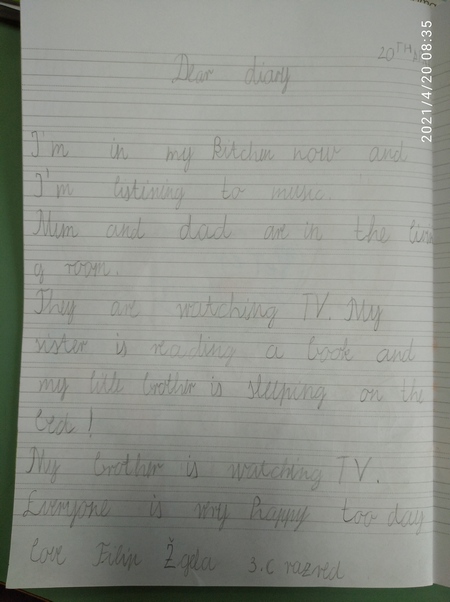 2021/4/20 08:35
20TH
Dear diary
I'm in my kitchen now and
I'm listining to music.
Mum and dad are in the livin
g room.
They are watching TV. My
sister is reading a book and
my little brother is sleeping on the
bed!
My brother is watching TV.
Everyone is very happy too day
love Filip Žgela 3.c razred